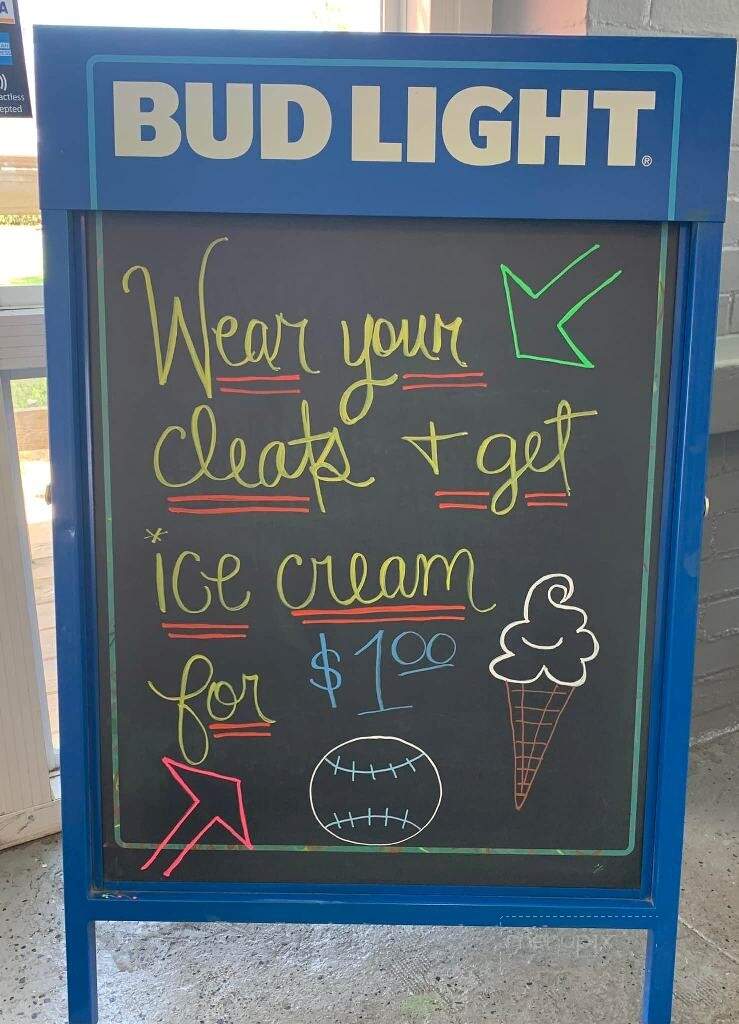 A
ctless
epted
BUD LIGHT®
Wear your
cleats + get
*ice cream
for $1.00
menupix